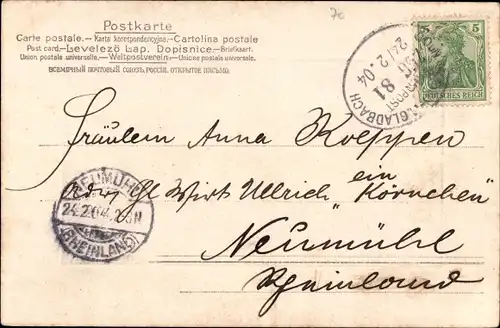 Postkarte
Carte postale. — Karta korespondencyjna. — Cartolina postale
Post card. — Levelező Lap. Dopisnice. — Briefkaart.
Union postale universelle. — Weltpostverein. — Unione postale universale.
ВСЕМИРНЫЙ ПОЧТОВЫЙ СОЮЗЪ. РОССІЯ. ОТКРЫТОЕ ПИСЬМО.
5
DEUTSCHES REICH
2.04
81
GLADBACH
Fräulein Anna Koeppen
Wirt Ullrich "ein Körnchen"
Neumühl
Rheinland
NEUMÜHL
24.2.04
(RHEINLAND)